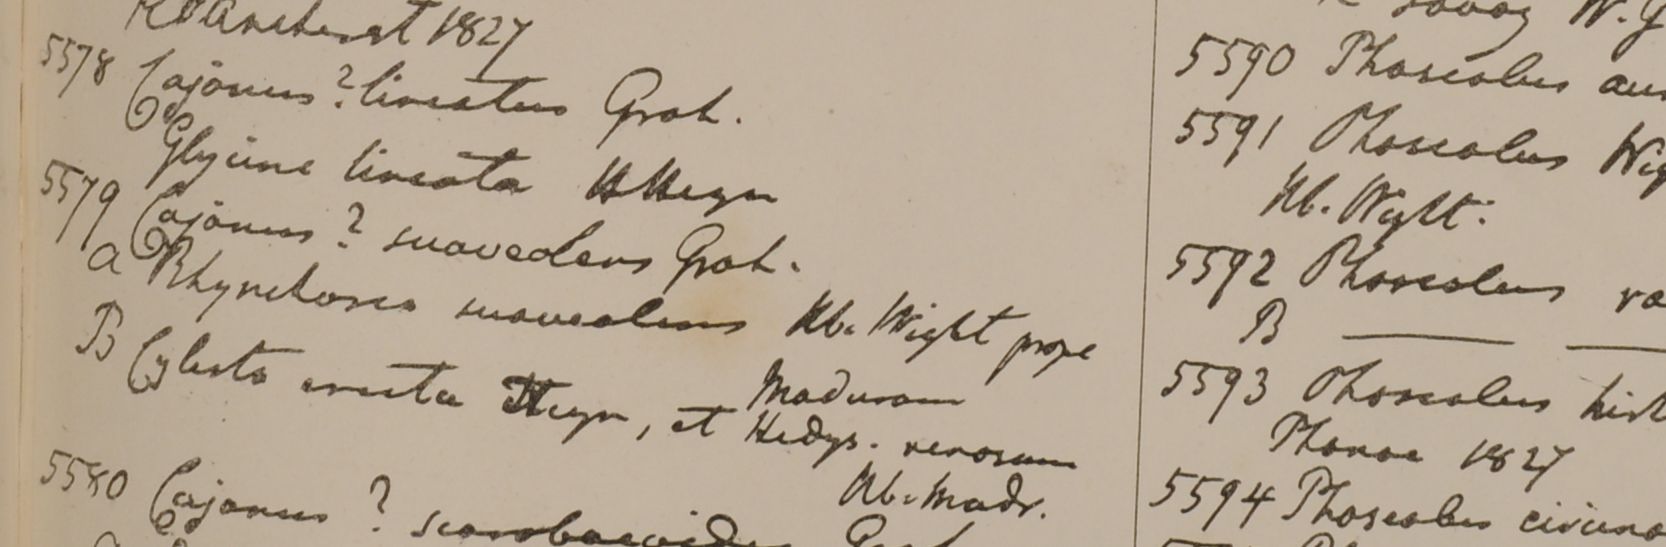 Amherst 1827
5578 Cajanus ? lineatus Grah.
Glycine lineata HHeyn
5579 Cajanus ? suaveolens Grah.
a Rhynchosia suaveolens Hb. Wight prope
Maduram
B Cylista erecta Heyn, et Hedys. venosum
Hb. Madr.
5580 Cajanus ? scarabaeoides Grah
W. G
5590 Phaseolus au
5591 Phaseolus Wig
Hb. Wight.
5592 Phaseolus ra
B — —
5593 Phaseolus hirt
Phonoe 1827
5594 Phaseolus circuna